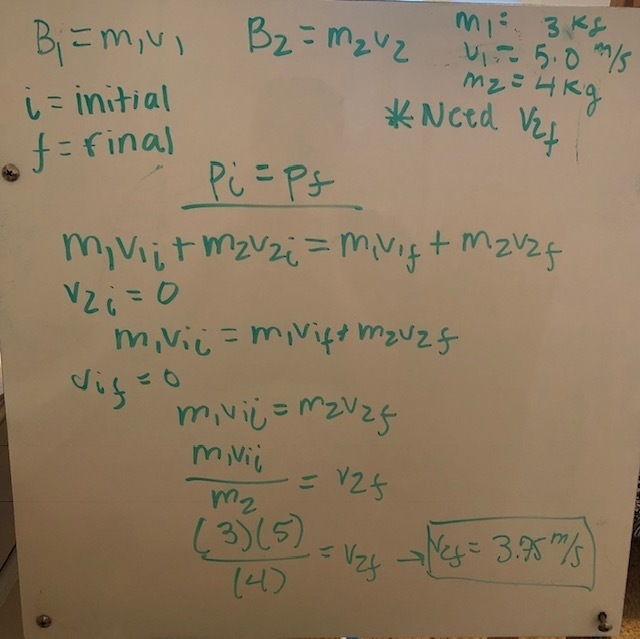 B₁ = m₁v₁ B₂ = m₂v₂ m₁: 3 kg
v₁ = 5.0 m/s
m₂ = 4 kg
i = initial
f = final
* Need v₂f
Pi = Pf
m₁v₁i + m₂v₂i = m₁v₁f + m₂v₂f
v₂i = 0
m₁v₁i = m₁v₁f + m₂v₂f
v₁f = 0
m₁v₁i = m₂v₂f
m₁v₁i / m₂ = v₂f
(3)(5) / (4) = v₂f → v₂f = 3.75 m/s